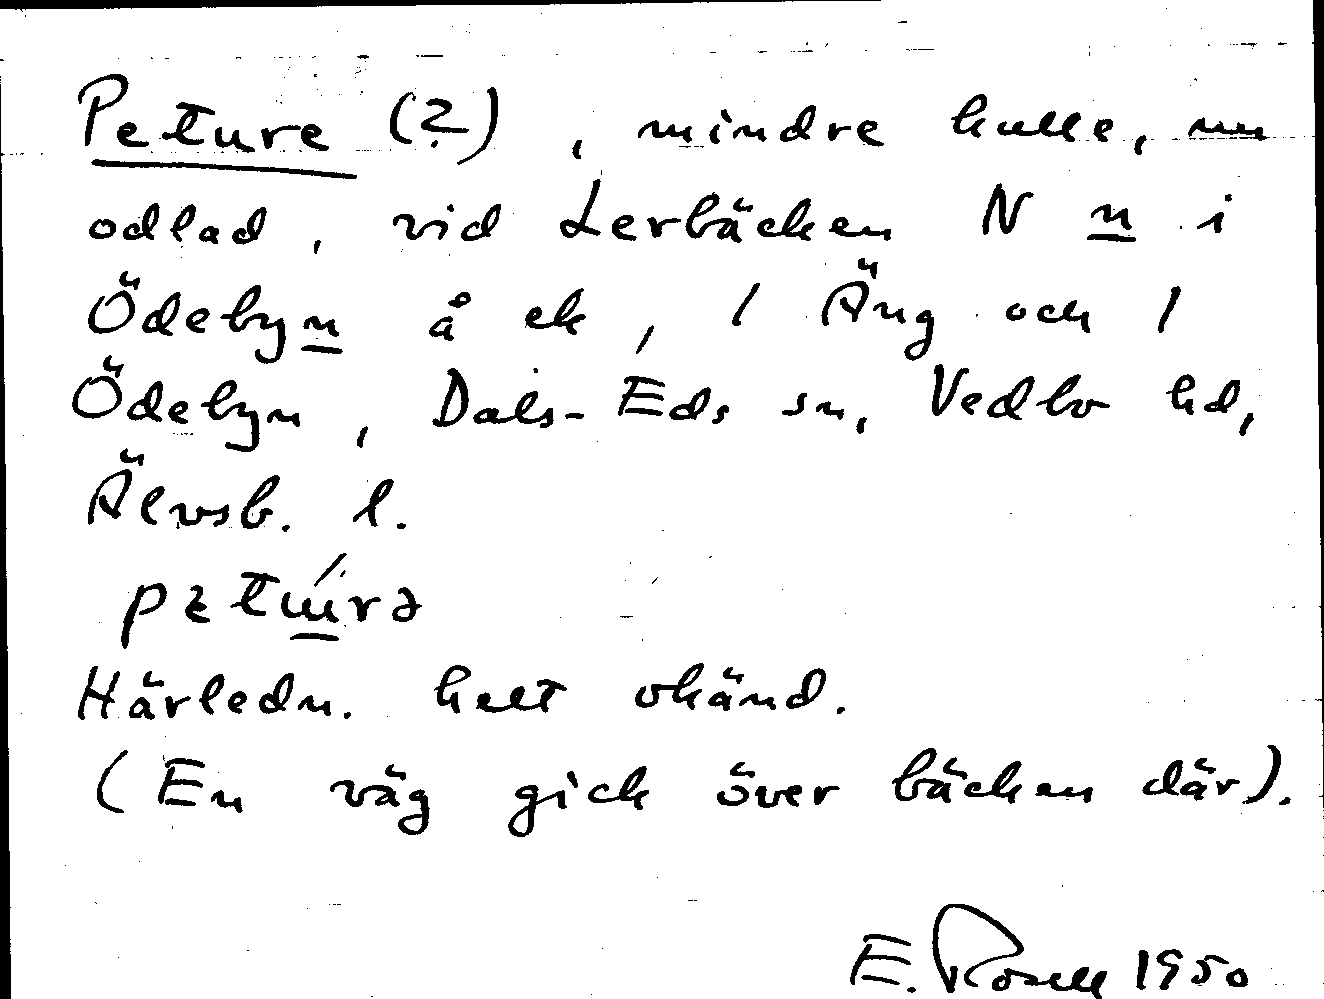 Peture (?), mindre kulle, nu
odlad, vid Lerbäcken N n i
Ödebyn å ek, 1 Äng och 1
Ödebyn, Dals-Eds sn, Vedbo hd,
Älvsb. l.
Härledn. helt okänd.
(En väg gick över bäcken där).
E. Rosell 1950